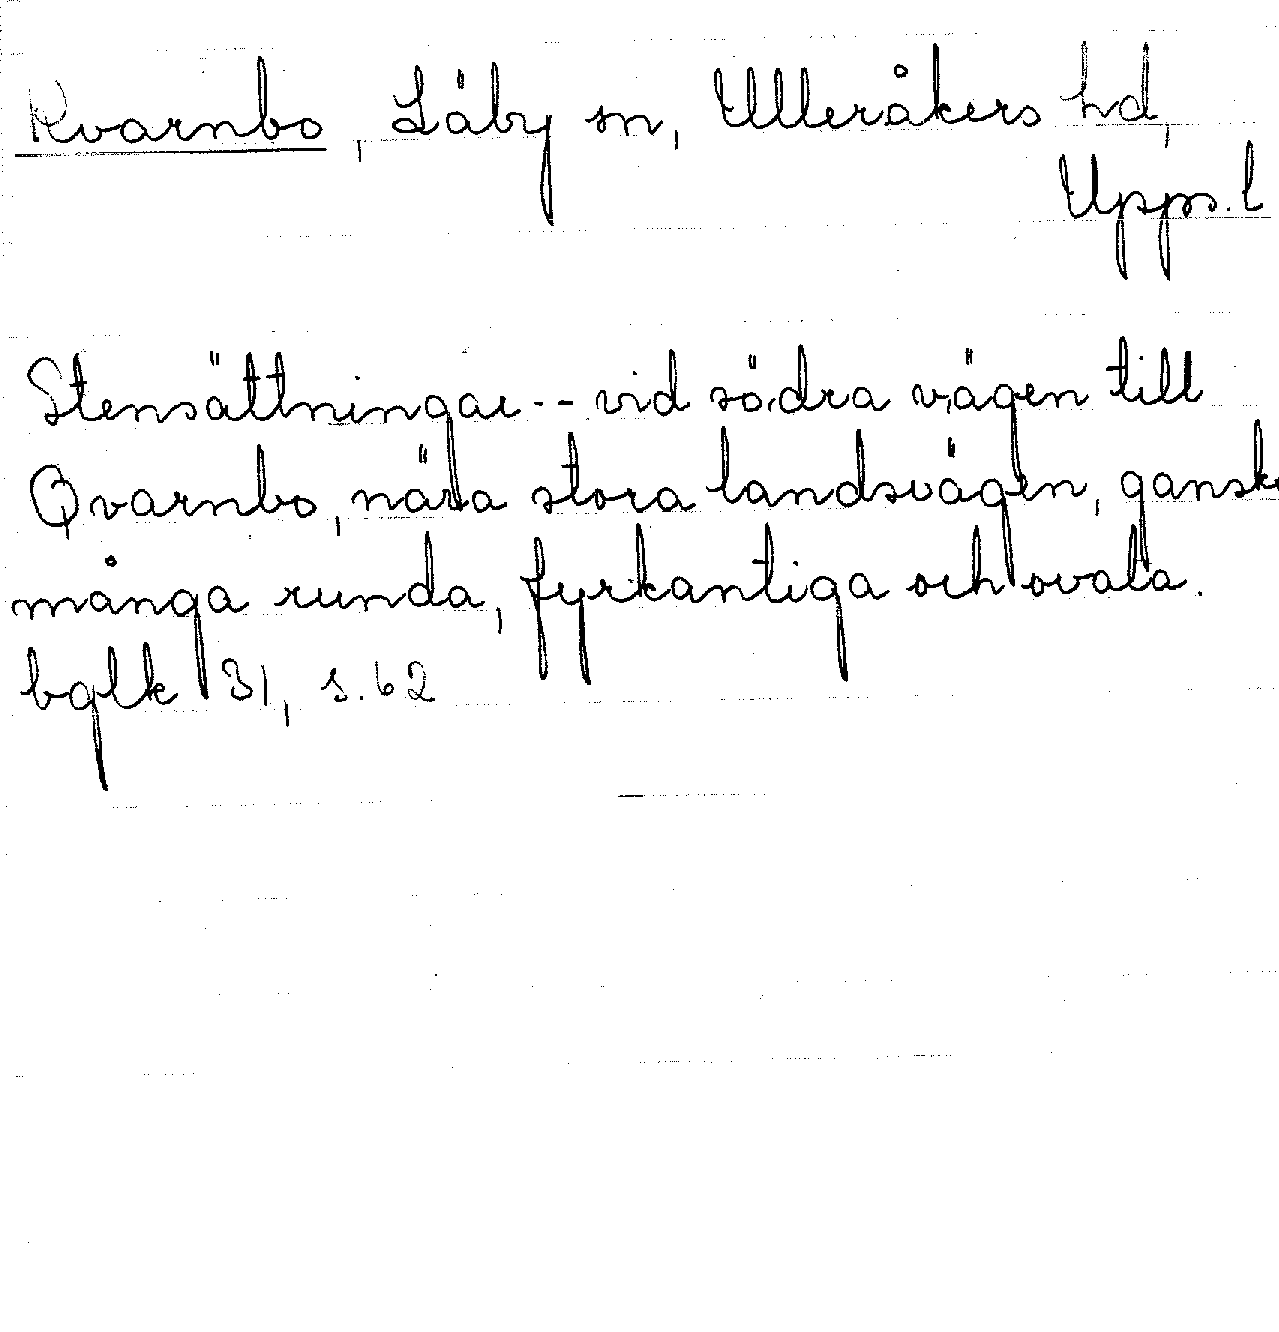 Kvarnbo, Läby sn, Ulleråkers hd,
Upps. l
Stensättningar -- vid södra vägen till
Qvarnbo, nära stora landsvägen, ganska
många runda, fyrkantiga och ovala.
bglk 31, s. 62